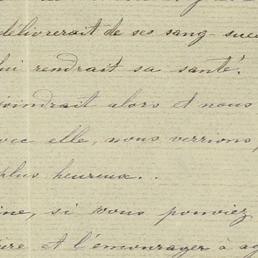 délivrerait de ses sang-sues
lui rendrait sa santé.
joindrait alors et nous
avec elle, nous verrions,
plus heureux..
ine, si vous pouviez
ire et l'encourager à ag